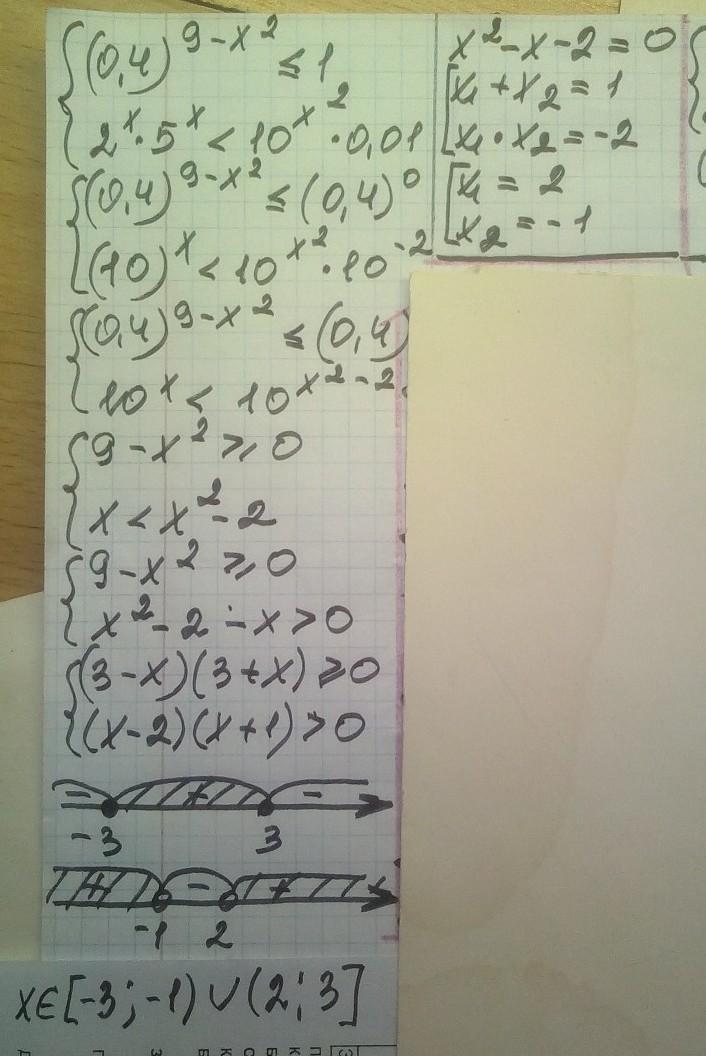 {(0,4)^{9-x^2} ≤ 1
2^x · 5^x < 10^{x^2} · 0,01
{(0,4)^{9-x^2} ≤ (0,4)^0
(10)^x < 10^{x^2} · 10^{-2}
{(0,4)^{9-x^2} ≤ (0,4)
10^x < 10^{x^2-2}
{9-x^2 ≥ 0
x < x^2-2
{9-x^2 ≥ 0
x^2-2-x > 0
{(3-x)(3+x) ≥ 0
(x-2)(x+1) > 0
- + -
-3 3
+ - +
-1 2
x∈[-3;-1)∪(2;3]
x^2-x-2=0
[x₁+x₂=1
x₁·x₂=-2
[x₁=2
x₂=-1